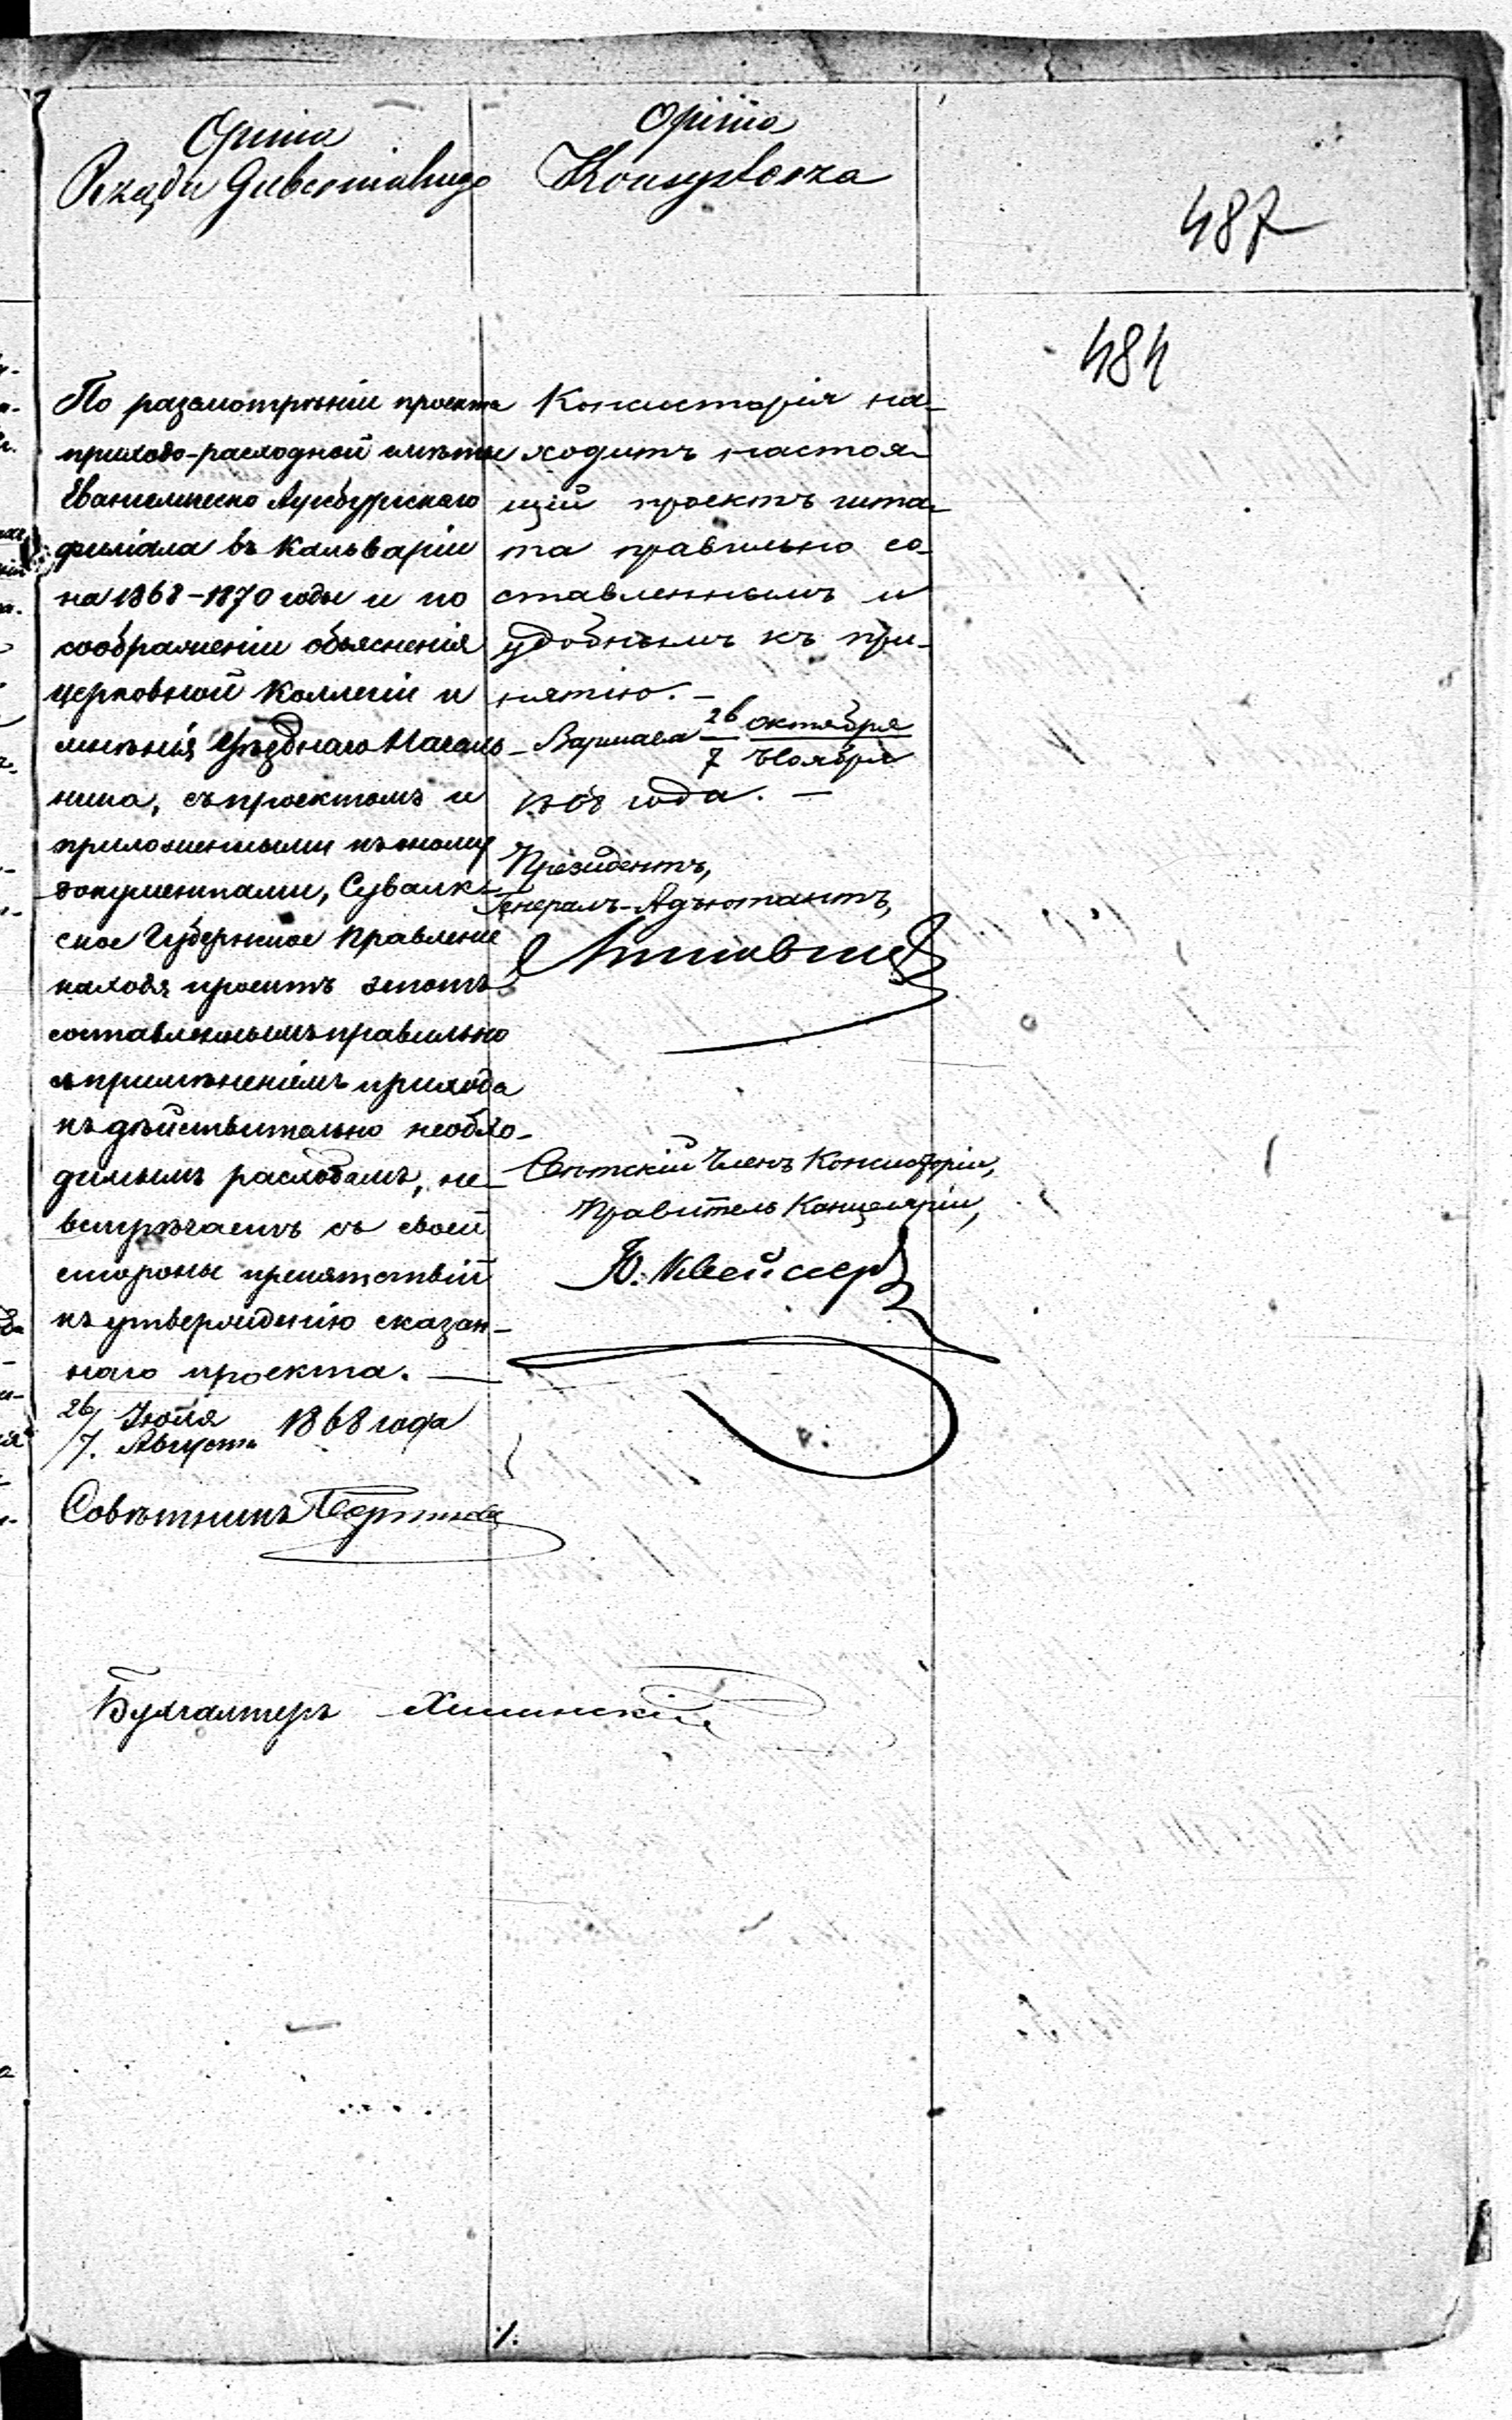 Opinia
Rządu Gubernialnego
По разсмотрѣніи проекта
приходо-расходной смѣты
Евангелическо Аугсбургскаго
филіала въ Кальваріи
на 1868-1870 годы и по
соображеніи объясненія
церковной Коллегіи и
мнѣнія Уѣзднаго Началь-
ника, съ проектомъ и
приложенными къ оному
документами, Сувалк-
ское Губернское Правленіе
находя проектъ этотъ
составленнымъ правильно
съ примѣненіемъ прихода
къ дѣйствительно необхо-
димымъ расходамъ, не
встрѣчаетъ съ своей
стороны препятствій
къ утвержденію сказан-
наго проекта. —
26/7. Іюля/Августа 1868 года
Совѣтникъ
Бухгалтеръ
Opinia
Konsystorza
Консисторія на-
ходитъ настоя-
щій проектъ шта-
та правильно со-
ставленнымъ и
удобнымъ къ при-
нятію. —
Варшава 26 Октября
7 Ноября
1868 года. —
Президентъ,
Генералъ-Адъютантъ,
Свѣтскій Членъ Консисторіи,
Правитель Канцеляріи,
487
484